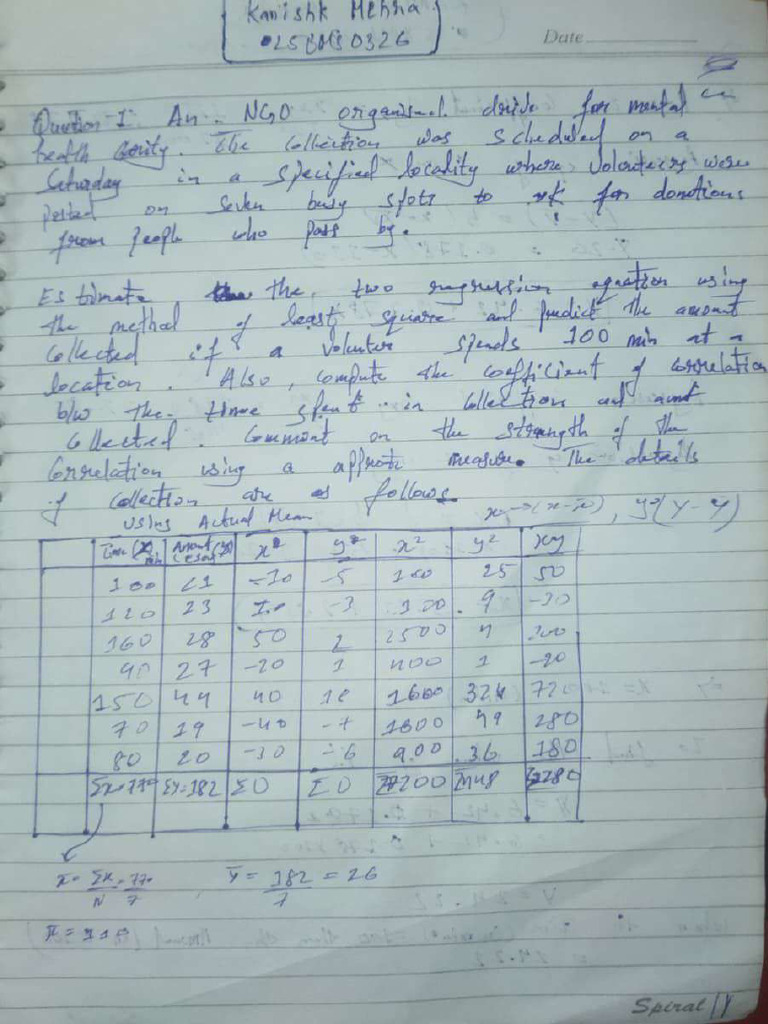 Kanishk Mehna
25BMS0326
Date
Question-1 An NGO organised drive for mental
health The collection was scheduled on a
Saturday in a specified locality where volunteers were
posted on seven busy spots to for donations
from people who pass by.
Estimate the two regression equation using
the method of least square and predict the amount
collected if a volunter spends 100 min at a
location. Also, compute the coefficient of correlation
b/w the time spent in collection and
collected. Comment on the strength of the
Correlation using a measure. The details
of collection are as follows
using Actual Mean (x-x̄), (y-ȳ)
Time (X) min Amount (Y) x y x² y² xy
100 21 -10 -5 100 25 50
120 23 10 -3 100 9 -30
160 28 50 2 2500 4 100
90 27 -20 1 400 1 -20
150 44 40 18 1600 324 720
70 19 -40 -7 1600 49 280
80 20 -30 -6 900 36 180
Σx=770 Σy=182 Σ0 Σ0 7200 448 1280
x̄ = Σx/N = 770/7 ȳ = 182/7 = 26
x̄ = 110
Spiral